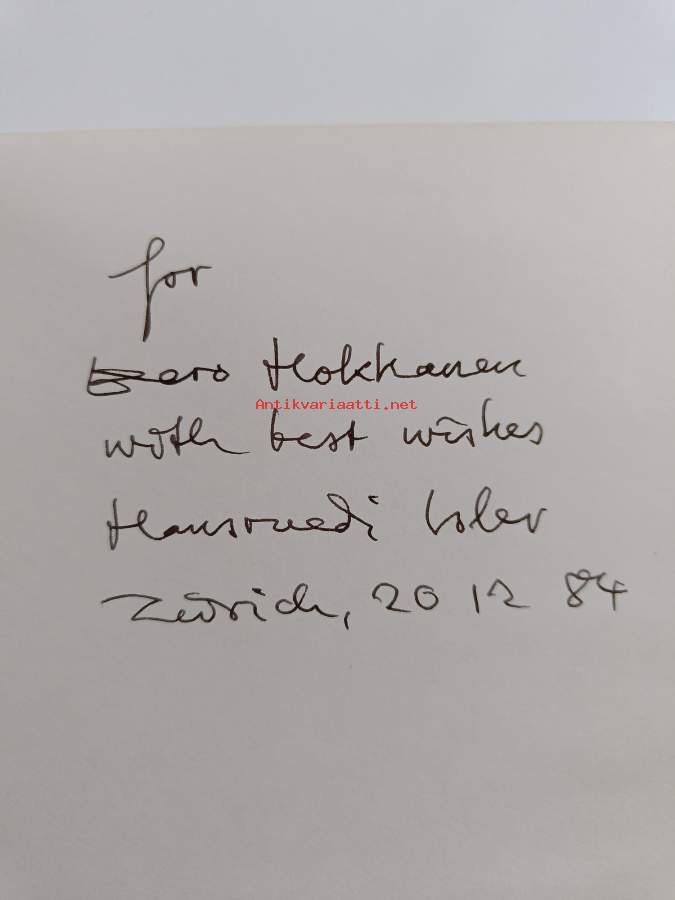 for
Eero Hokkanen
Antikvariaatti.net
with best wishes
Hansruedi Isler
Zürich, 20 12 84